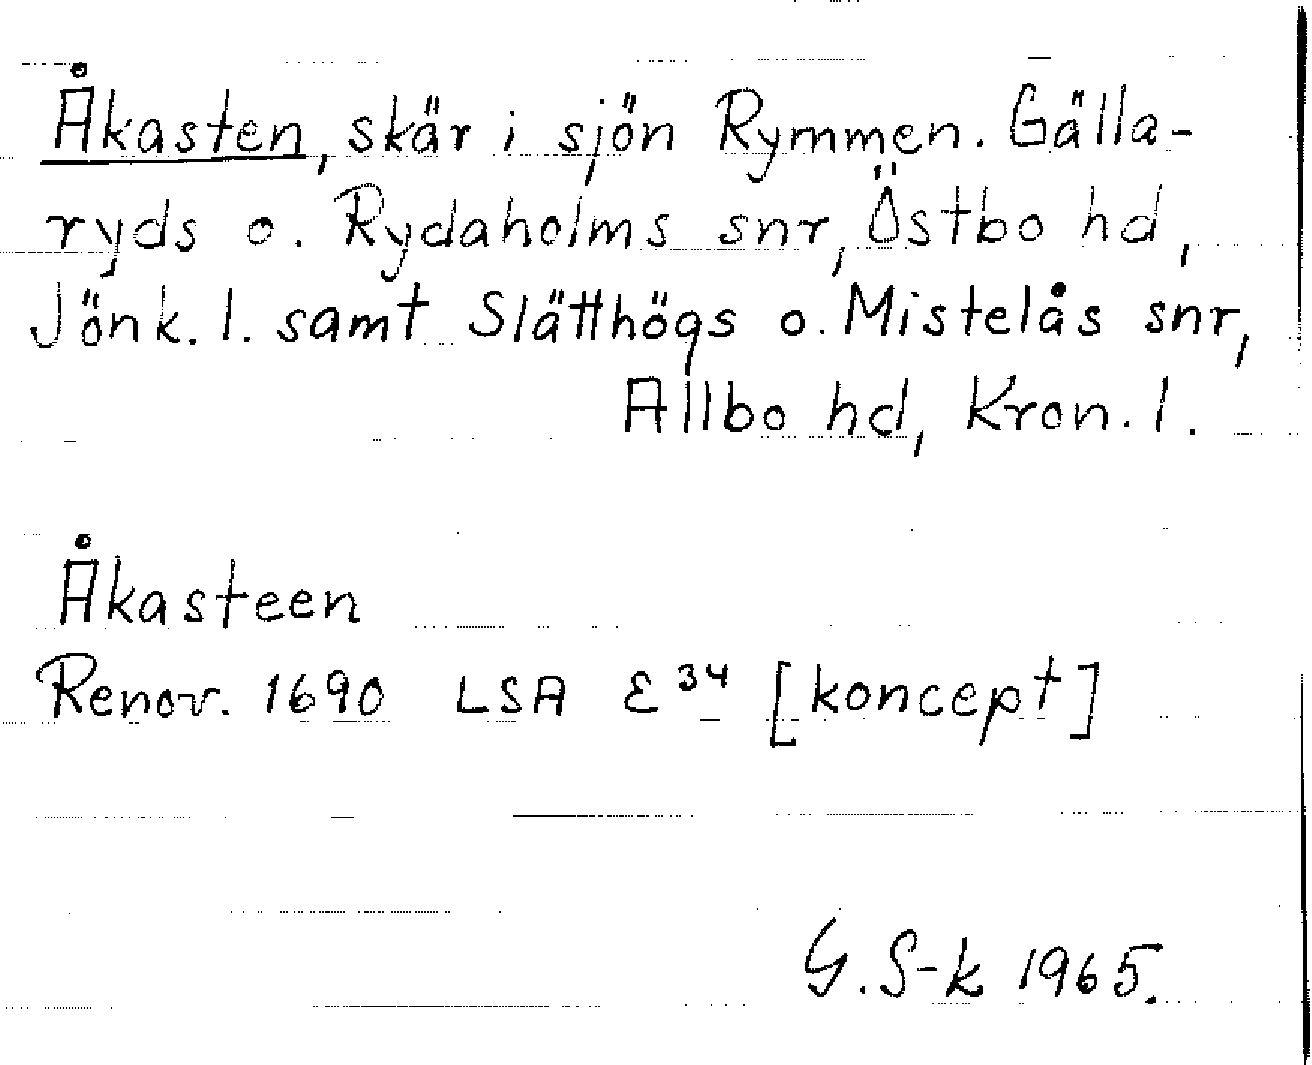 Åkasten, skär i sjön Rymmen. Gälla-
ryds o. Rydaholms snr, Östbo hd,
Jönk. l. samt Slätthögs o. Mistelås snr,
Allbo hd, Kron. l.
Åkasteen
Renov. 1690 LSA E 34 [koncept]
G. S-k 1965.